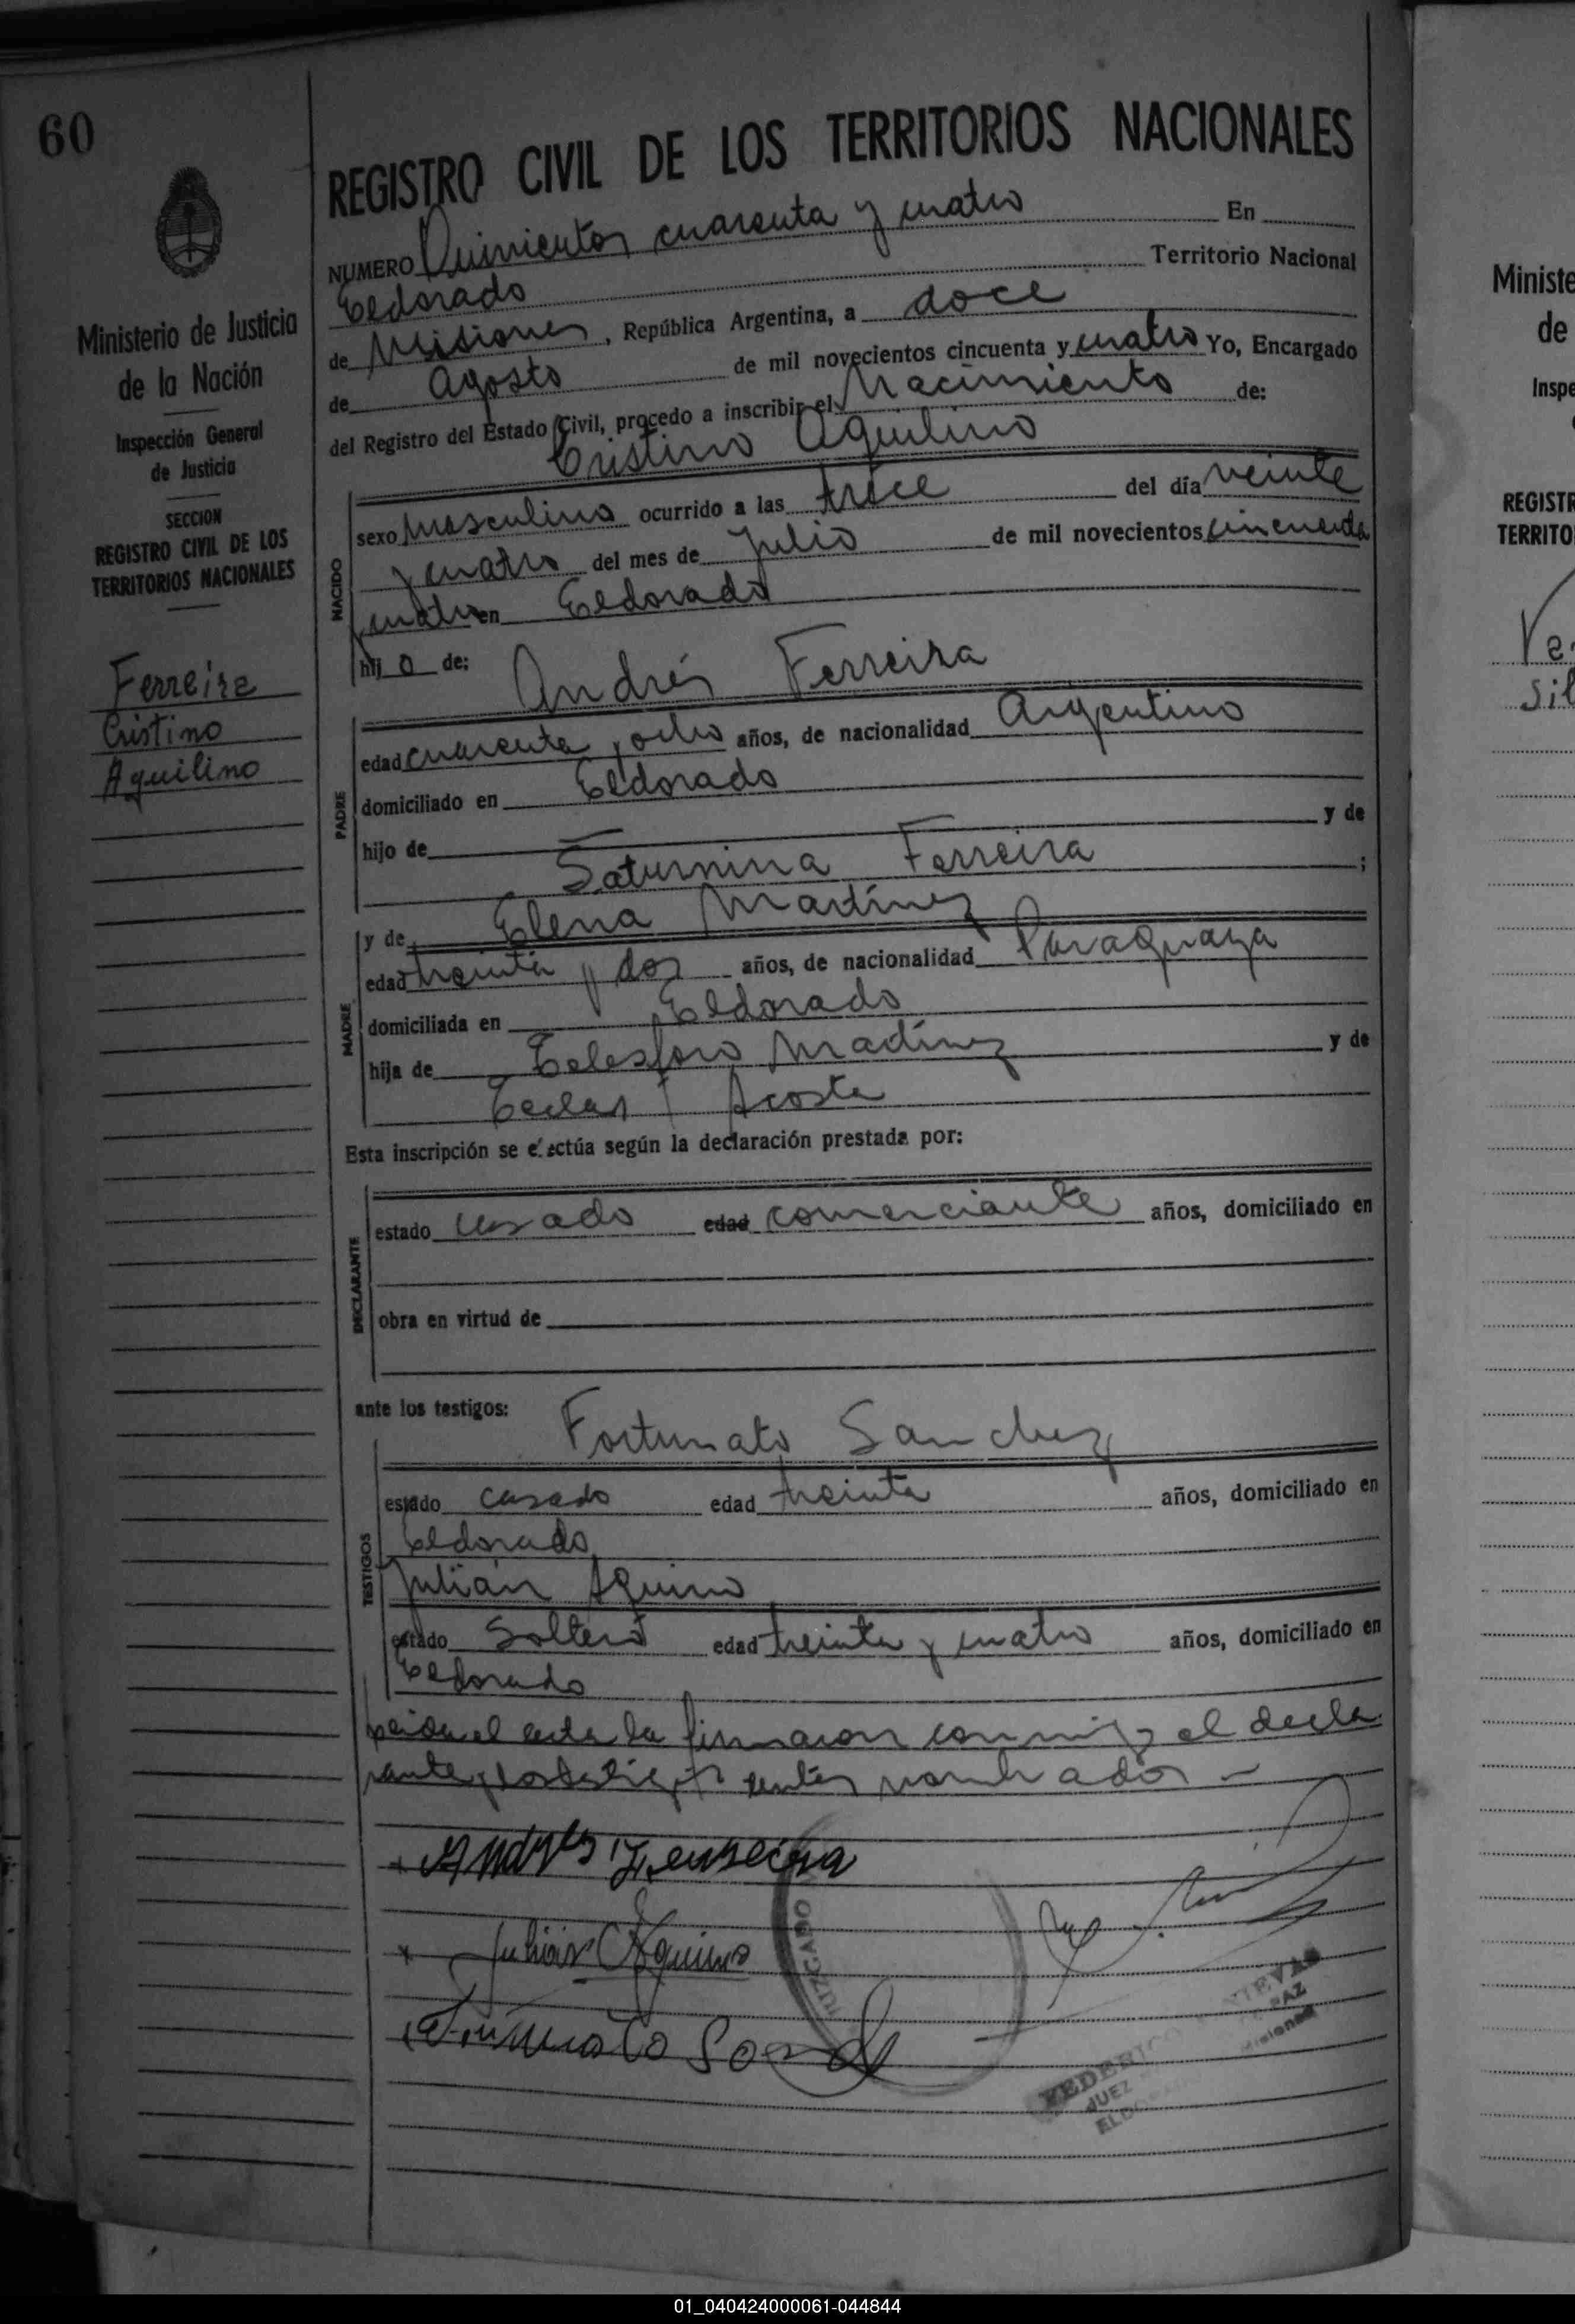 60
REGISTRO CIVIL DE LOS TERRITORIOS NACIONALES
NUMERO Quinientos cuarenta y cuatro En
Eldorado Territorio Nacional
de Misiones, República Argentina, a doce
de agosto de mil novecientos cincuenta y cuatro Yo, Encargado
del Registro del Estado Civil, procedo a inscribir el Nacimiento de:
Cristino Aquilino
NACIDO
sexo masculino ocurrido a las trece del día veinte
y cuatro del mes de Julio de mil novecientos cincuenta
y cuatro en Eldorado
hijo de:
Andrés Ferreira
PADRE
edad cuarenta y ocho años, de nacionalidad Argentino
domiciliado en Eldorado
hijo de y de
Saturnina Ferreira ;
y de Elena Martínez
MADRE
edad treinta y dos años, de nacionalidad Paraguaya
domiciliada en Eldorado
hija de Telesforo Martínez y de
Acosta
Esta inscripción se efectúa según la declaración prestada por:
DECLARANTE
estado casado edad comerciante años, domiciliado en
obra en virtud de
ante los testigos:
Fortunato Sanchez
TESTIGOS
estado casado edad treinta años, domiciliado en
Eldorado
Julián Aquino
estado Soltero edad treinta y cuatro años, domiciliado en
Eldorado
el acta la firmaron conmigo el decla
rante y los testigos antes nombrados
Andres Ferreira
Julián Aquino
JUZGADO
FEDERICO
JUEZ PAZ
Misiones
Ministerio de Justicia
de la Nación
Inspección General
de Justicia
SECCION
REGISTRO CIVIL DE LOS
TERRITORIOS NACIONALES
Ferreira
Cristino
Aquilino
Ministe
de
Inspe
REGISTR
TERRITO
01_040424000061-044844